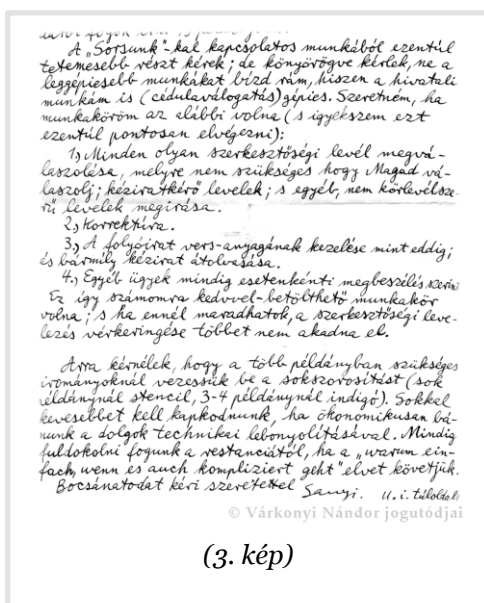 A „Sorsunk"-kal kapcsolatos munkából ezentúl
tetemesebb részt kérek; de könyörögve kérlek, ne a
leggépiesebb munkákat bízd rám, hiszen a hivatali
munkám is (cédulaválogatás) gépies. Szeretném, ha
munkaköröm az alábbi volna (s igyekszem ezt
ezentúl pontosan elvégezni):
1., Minden olyan szerkesztőségi levél megvá-
laszolása, melyre nem szükséges hogy Magad vá-
laszolj; kéziratkérő levelek; s egyéb, nem körlevélsze-
rű levelek megirása.
2., Korrektúra.
3., A folyóirat vers-anyagának kezelése mint eddig;
és bármily kézirat átolvasása.
4., Egyéb ügyek mindig esetenkénti megbeszélés szerint
Ez így számomra kedvvel-betölthető munkakör
volna; s ha ennél maradhatok, a szerkesztőségi leve-
lezés vérkeringése többet nem akadna el.
Arra kérnélek, hogy a több példányban szükséges
irományoknál vezessük be a sokszorosítást (sok
példánynál stencil, 3-4 példánynál indigó). Sokkal
kevesebbet kell kapkodnunk, ha ökonomikusan bá-
nunk a dolgok technikai lebonyolításával. Mindig
fuldokolni fogunk a restanciától, ha a „warum ein-
fach, wenn es auch kompliziert geht" elvet követjük.
Bocsánatodat kéri szeretettel Sanyi. U.i. túloldalt
© Várkonyi Nándor jogutódjai
(3. kép)